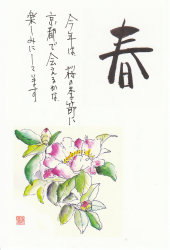 春
今年は桜の季節に
京都で会えるかな
楽しみにしてます